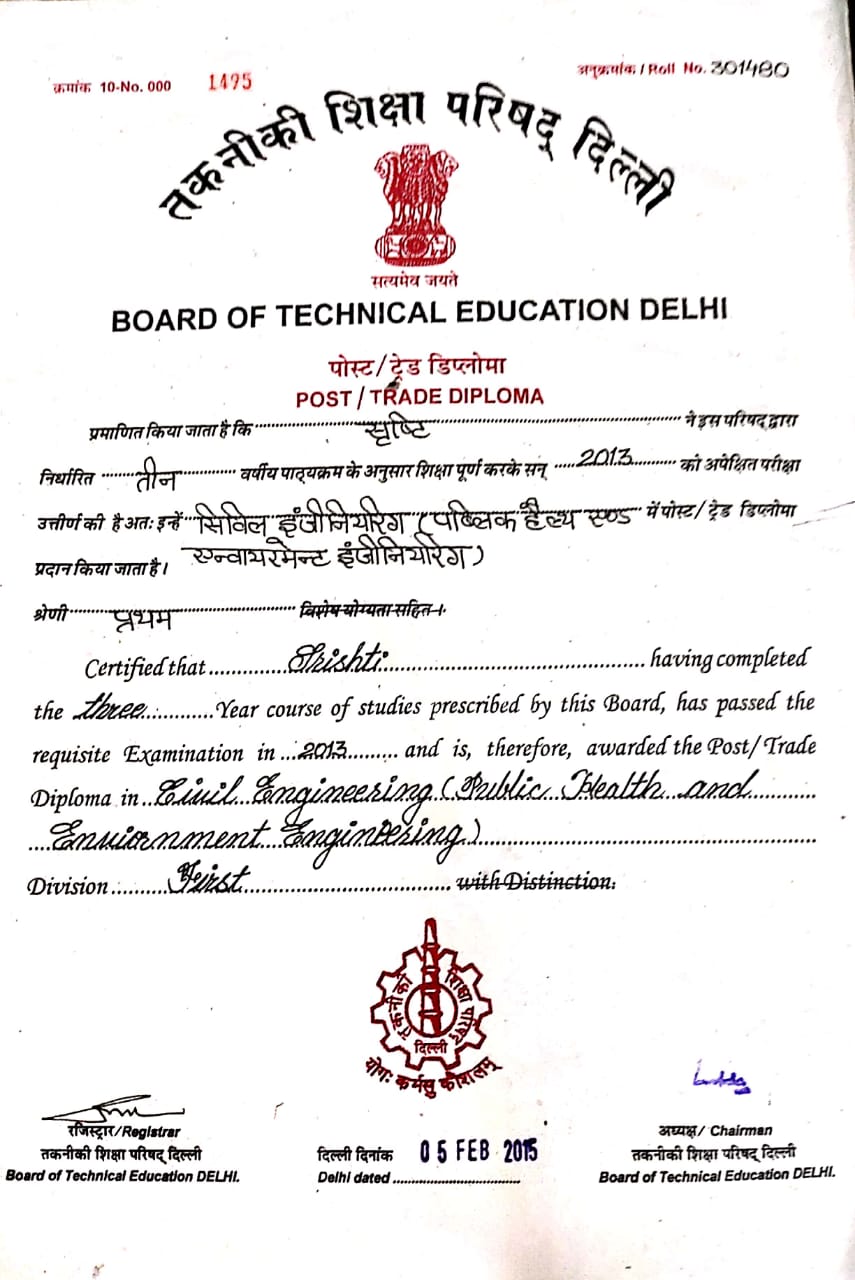 क्रमांक 10-No. 000 1495
अनुक्रमांक / Roll No. 301480
तकनीकी शिक्षा परिषद् दिल्ली
सत्यमेव जयते
BOARD OF TECHNICAL EDUCATION DELHI
पोस्ट/ट्रेड डिप्लोमा
POST / TRADE DIPLOMA
प्रमाणित किया जाता है कि सृष्टि ने इस परिषद् द्वारा
निर्धारित तीन वर्षीय पाठ्यक्रम के अनुसार शिक्षा पूर्ण करके सन् 2013 को अपेक्षित परीक्षा
उत्तीर्ण की है अतः इन्हें सिविल इंजीनियरिंग (पब्लिक हैल्थ एण्ड में पोस्ट/ ट्रेड डिप्लोमा
प्रदान किया जाता है। एन्वायरमेन्ट इंजीनियरिंग)
श्रेणी प्रथम विशेष योग्यता सहित।
Certified that Srishti having completed
the three Year course of studies prescribed by this Board, has passed the
requisite Examination in 2013 and is, therefore, awarded the Post/Trade
Diploma in Civil Engineering (Public Health and
Enviornment Engineering)
Division First with Distinction.
तकनीकी शिक्षा परिषद्
दिल्ली
योगः कर्मसु कौशलम्
रजिस्ट्रार/Registrar
तकनीकी शिक्षा परिषद् दिल्ली
Board of Technical Education DELHI.
दिल्ली दिनांक 05 FEB 2015
Delhi dated
अध्यक्ष/ Chairman
तकनीकी शिक्षा परिषद् दिल्ली
Board of Technical Education DELHI.